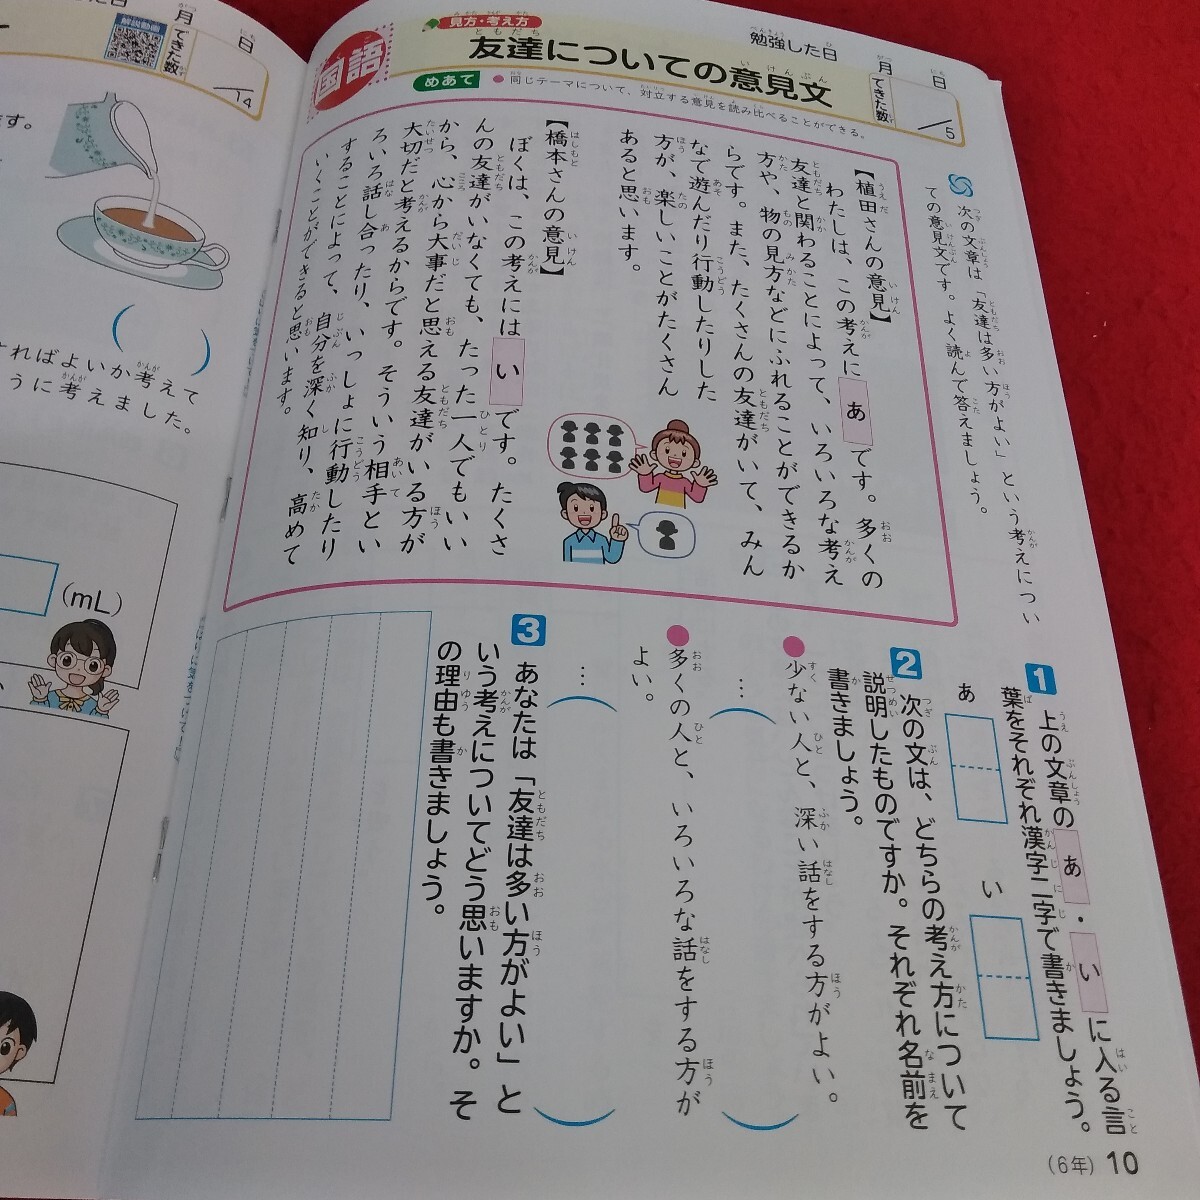 国語
見方・考え方
友達についての意見文
勉強した日
月
日
めあて
●同じテーマについて、対立する意見を読み比べることができる。
できた数
/5
次の文章は「友達は多い方がよい」という考えについ
ての意見文です。よく読んで答えましょう。
【植田さんの意見】
わたしは、この考えにあです。多くの
友達と関わることによって、いろいろな考え
方や、物の見方などにふれることができるか
らです。また、たくさんの友達がいて、みん
なで遊んだり行動したりした
方が、楽しいことがたくさん
あると思います。
【橋本さんの意見】
ぼくは、この考えにはいです。たくさ
んの友達がいなくても、たった一人でもいい
から、心から大事だと思える友達がいる方が
大切だと考えるからです。そういう相手とい
ろいろ話し合ったり、いっしょに行動したり
することによって、自分を深く知り、高めて
いくことができると思います。
1
上の文章のあ・いに入る言
葉をそれぞれ漢字二字で書きましょう。
あ
い
2
次の文は、どちらの考え方について
説明したものですか。それぞれ名前を
書きましょう。
●少ない人と、深い話をする方がよい。
…( )
●多くの人と、いろいろな話をする方が
よい。
…( )
3
あなたは「友達は多い方がよい」と
いう考えについてどう思いますか。そ
の理由も書きましょう。
(6年) 10
月
日
解説動画
できた数
/14
ます。
( )
すればよいか考えて
うに考えました。
(mL)